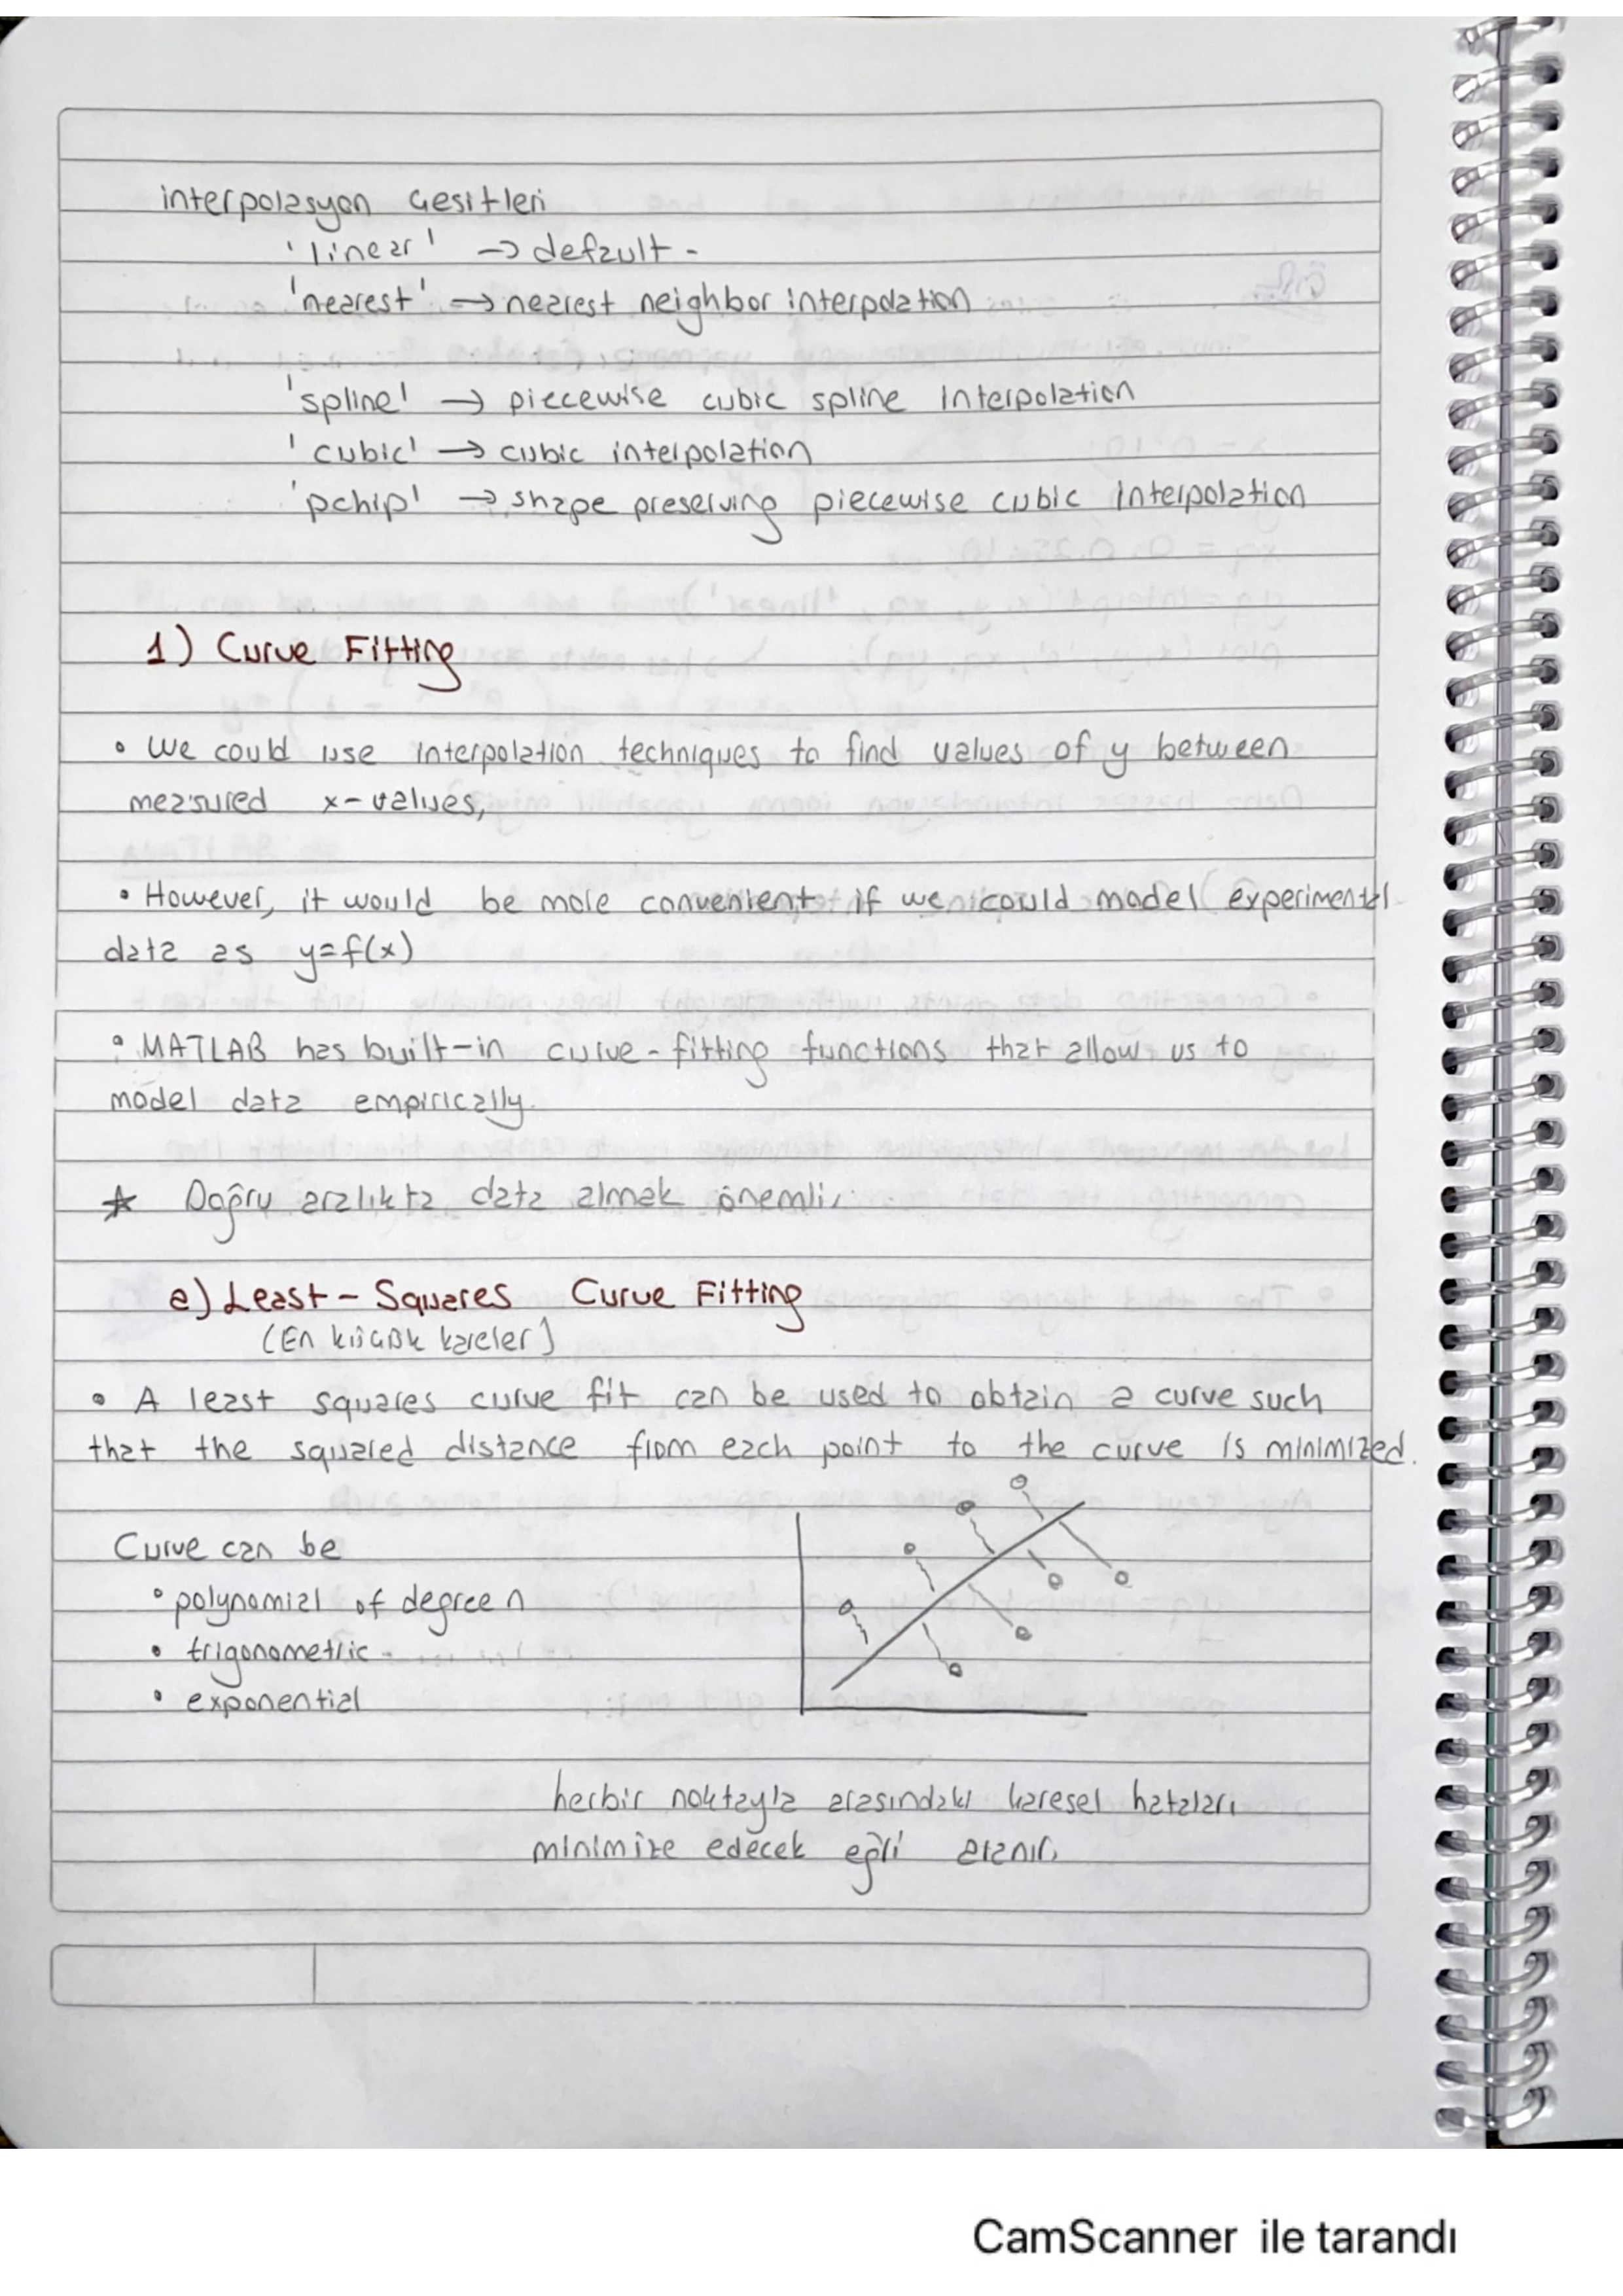 interpolasyon Çesitleri
'linear' → default -
'nearest' → nearest neighbor interpolation
'spline' → piecewise cubic spline interpolation
'cubic' → cubic interpolation
'pchip' → shape preserving piecewise cubic interpolation
1) Curve Fitting
• We could use interpolation techniques to find values of y between
measured x-values,
• However, it would be more convenient if we could model experimental
data as y=f(x)
• MATLAB has built-in curve-fitting functions that allow us to
model data empirically.
★ Doğru aralıkta data almak önemli.
a) Least-Squares Curve Fitting
(En küçük kareler)
• A least squares curve fit can be used to obtain a curve such
that the squared distance from each point to the curve is minimized.
Curve can be
• polynomial of degree n
• trigonometric -
• exponential
herbir noktayla arasındaki karesel hataları
minimize edecek eğri aranır.
CamScanner ile tarandı